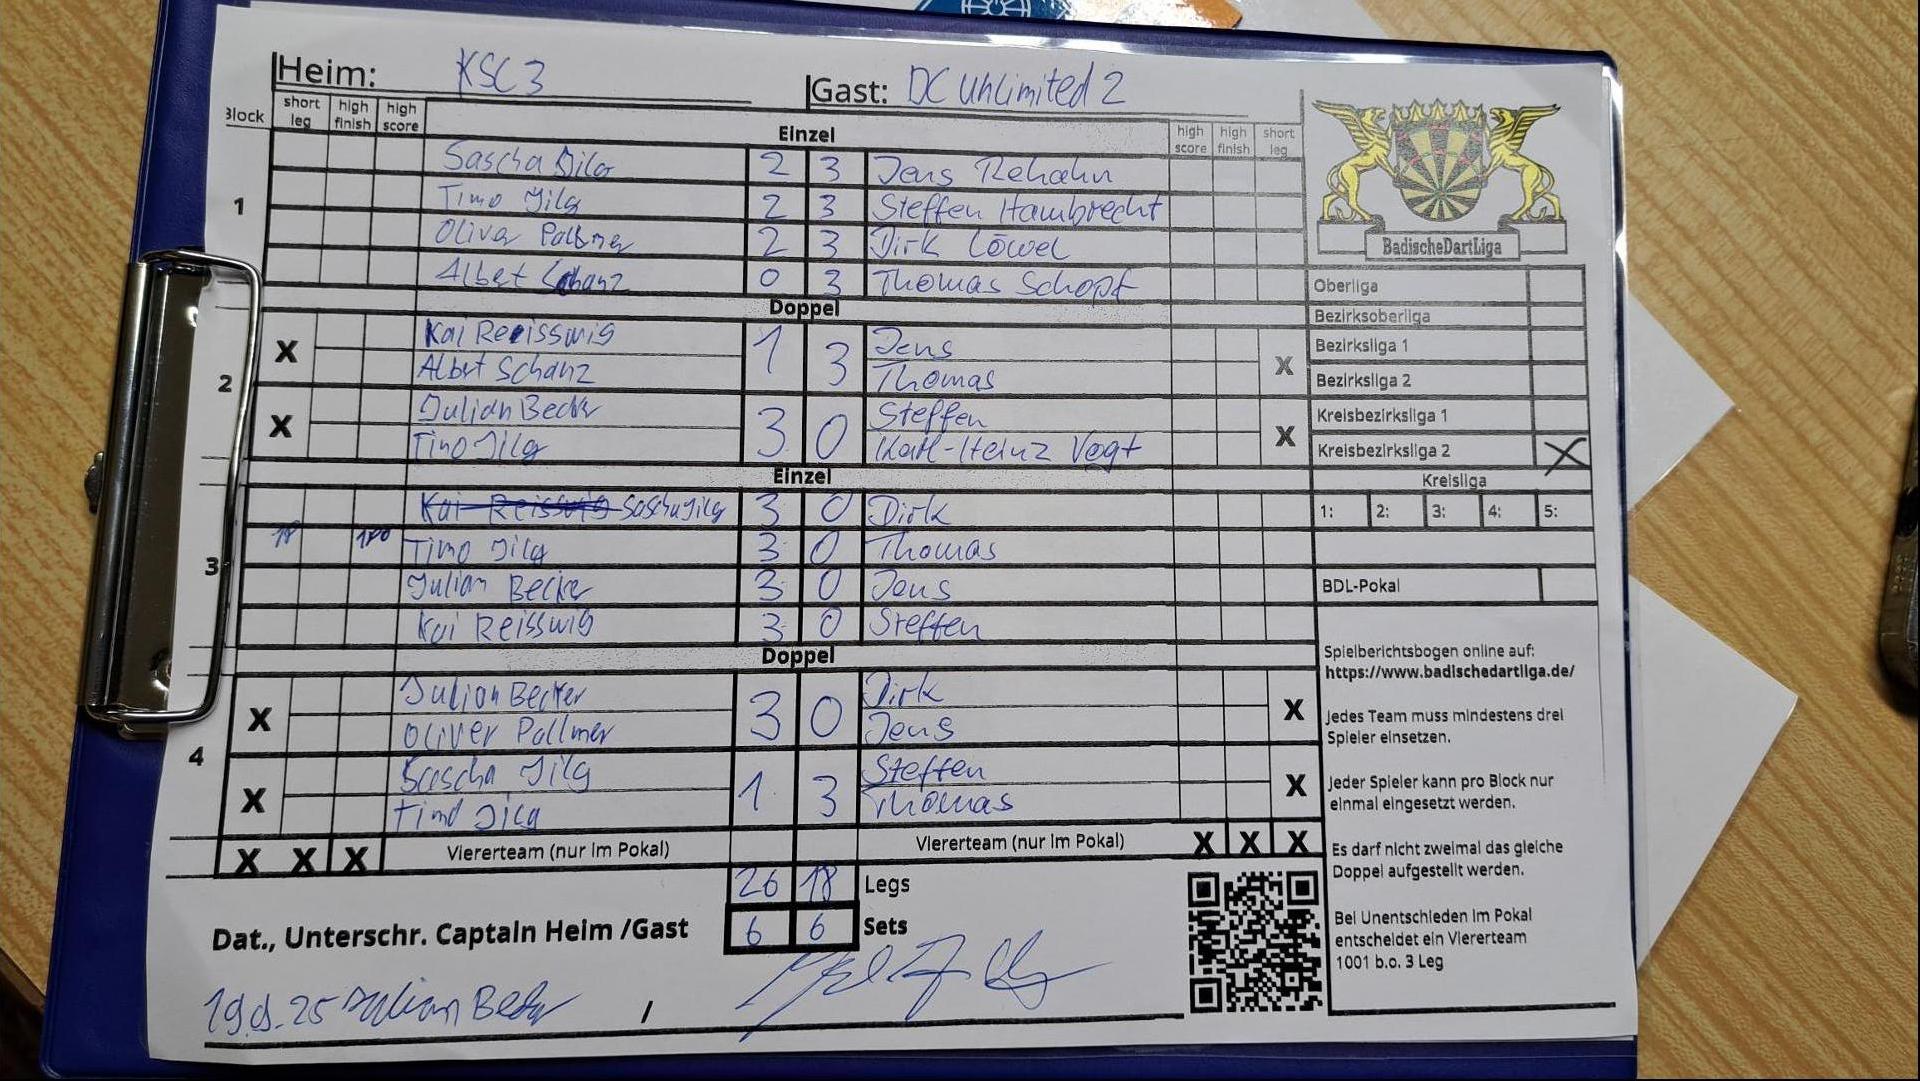 Heim: KSC 3 Gast: DC Unlimited 2
Block short leg high finish high score Einzel high score high finish short leg
1
Sascha Jilg 2 3 Jens Rehahn
Timo Jilg 2 3 Steffen Hambrecht
Oliver Pallmer 2 3 Dirk Löwel
Albert Schanz 0 3 Thomas Schopf
Doppel
2
X Kai Reisswig 1 3 Jens X
Albert Schanz Thomas
X Julian Becker 3 0 Steffen X
Timo Jilg Karl-Heinz Vogt
Einzel
3
Kai Reisswig Sascha Jilg 3 0 Dirk
18 180 Timo Jilg 3 0 Thomas
Julian Becker 3 0 Jens
Kai Reisswig 3 0 Steffen
Doppel
4
X Julian Becker 3 0 Dirk X
Oliver Pallmer Jens
X Sascha Jilg 1 3 Steffen X
Timo Jilg Thomas
X X X Viererteam (nur im Pokal) Viererteam (nur im Pokal) X X X
26 18 Legs
6 6 Sets
Dat., Unterschr. Captain Heim /Gast
19.9.25 Julian Becker /
BadischeDartLiga
Oberliga
Bezirksoberliga
Bezirksliga 1
Bezirksliga 2
Kreisbezirksliga 1
Kreisbezirksliga 2 X
Kreisliga
1: 2: 3: 4: 5:
BDL-Pokal
Spielberichtsbogen online auf:
https://www.badischedartliga.de/
Jedes Team muss mindestens drei
Spieler einsetzen.
Jeder Spieler kann pro Block nur
einmal eingesetzt werden.
Es darf nicht zweimal das gleiche
Doppel aufgestellt werden.
Bei Unentschieden im Pokal
entscheidet ein Viererteam
1001 b.o. 3 Leg